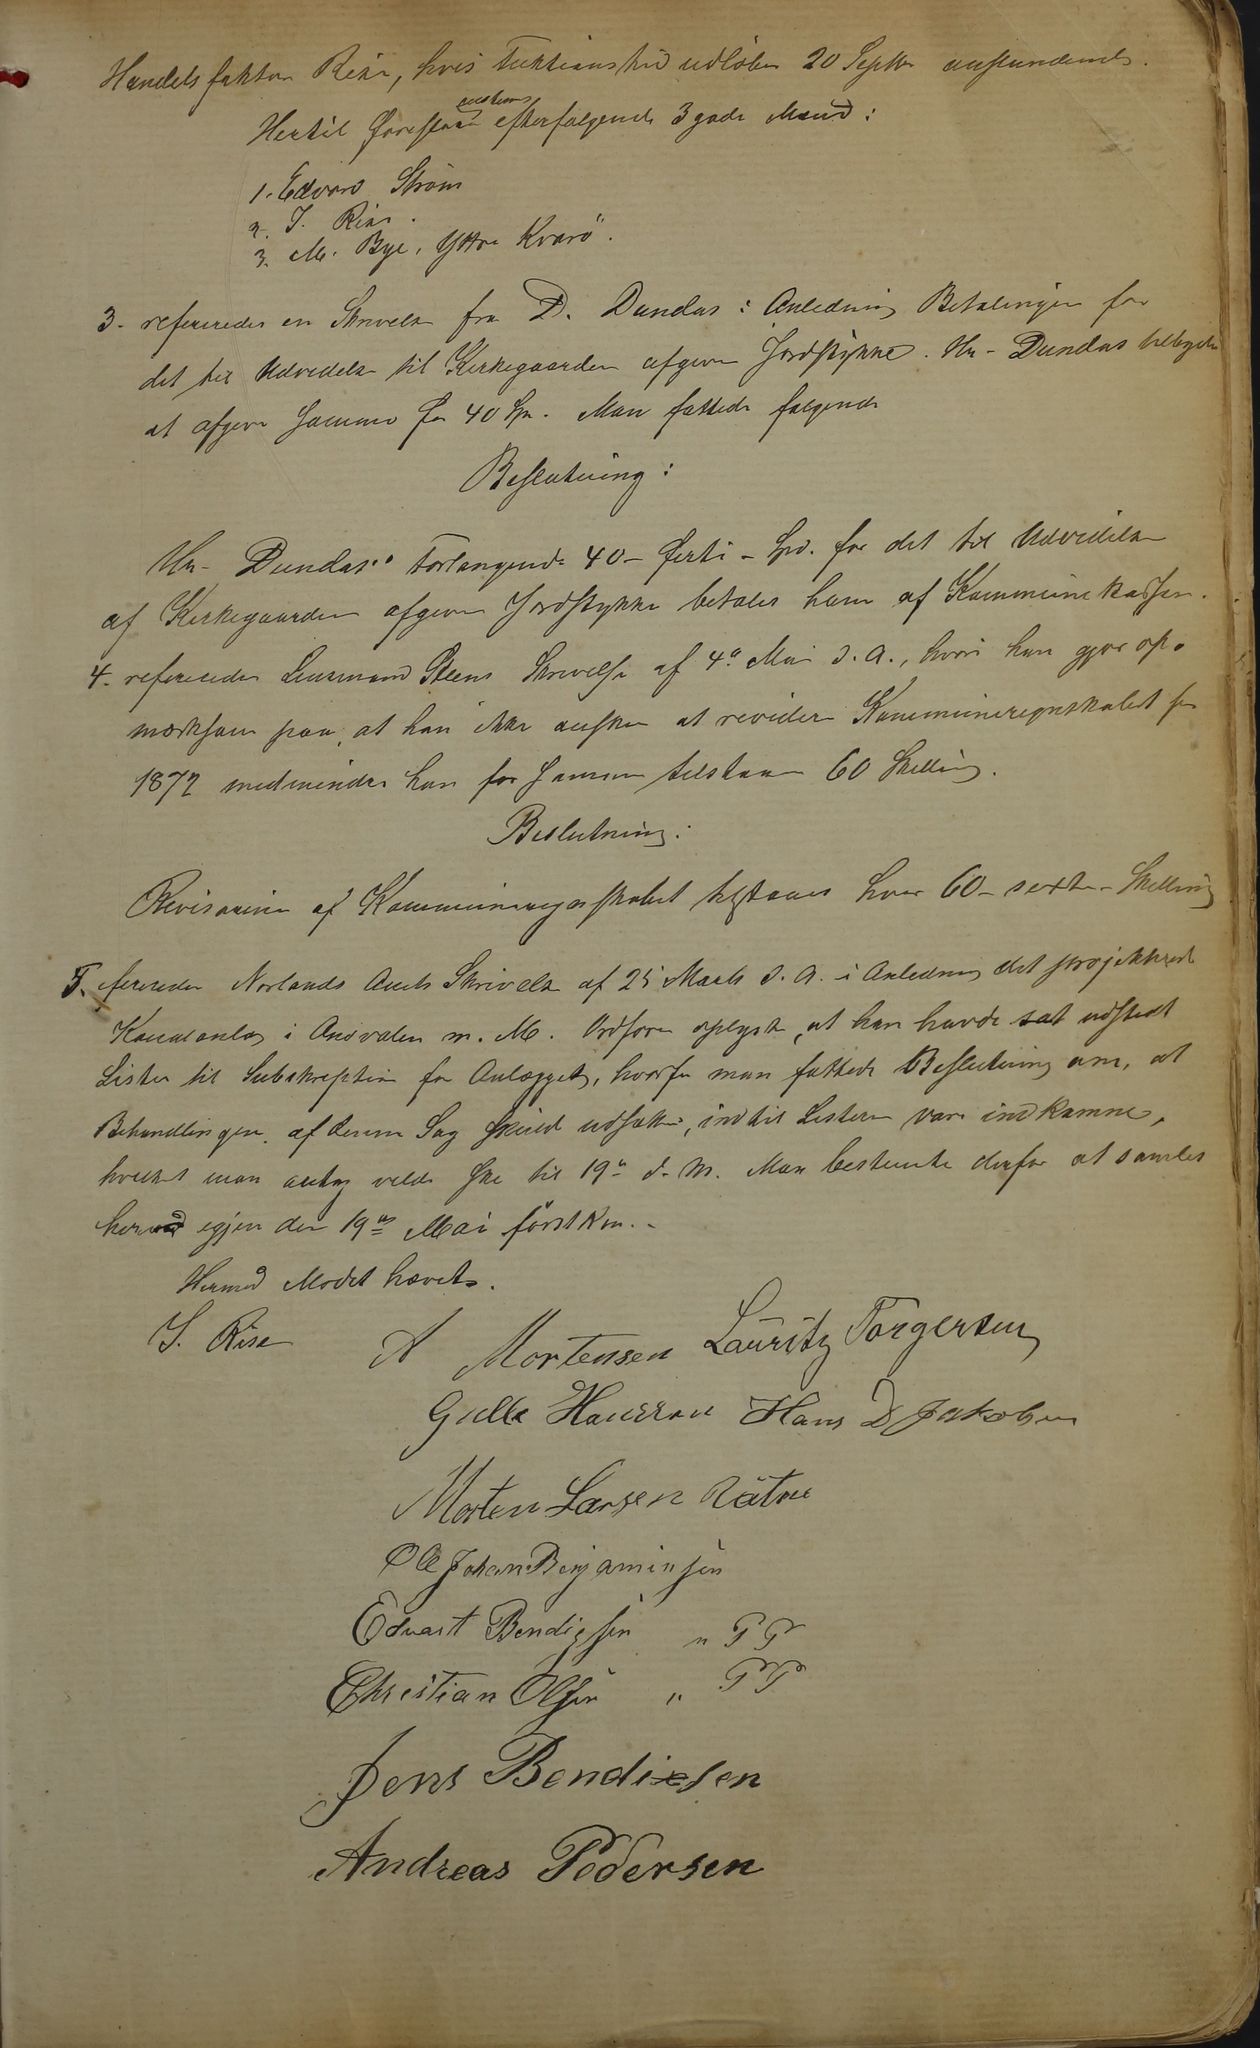 Handelsfaktor Risø, hvis Funktionstid udløber 20 Septbr anstundende.
Hertil foreslaar efterfølgende 3 gode Mænd:
1. Edvard Strøm
2. J. Risø.
3. M. Bye, Yttre Kvarö.
3. refereredes en Skrivelse fra D. Dundas i Anledning Betalingen for
det til Udvidelse til Kirkegaarden afgivne Jordstykke. Hr. Dundas
at afgive samme for 40 Spd. Man fattede følgende
Beslutning:
Hr. Dundas's Forlangende 40 - förti - Spd. for det til Udvidelse
af Kirkegaarden afgivne Jordstykke betales ham af Kommunekassen.
4. refereredes Lensmand Steens Skrivelse af 4de Mai d. A., hvori han gjør op-
mærksom paa, at han ikke ønsker at revidere Kommuneregnskabet for
1872 medmindre han for samme tilstaaes 60 Skilling.
Beslutning:
Revisorerne af Kommuneregnskabet tilstaaes hver 60 - sexti - Skilling
5. refereredes Norlands Amts Skrivelse af 25 Marts d. A. i Anledning det projekterede
Kanalanlæg i m. M. Ordføreren oplyste, at han havde sat udstedt
Lister til Subskription for Anlægget, hvorfor man fattede Beslutning om, at
Behandlingen af denne Sag skulde udsættes, indtil Listerne vare indkomne,
hvilket man antog vilde ske til 19de d. M. Man bestemte derfor at samles
herved igjen den 19de Mai förstkm.
Hermed Mødet hævet.
J. Risø A Mortensen Lauritz Torgersen
Gulle Hanssen Hans D Jakobsen
Morten Larsen Nätnes
Ole Johan Benjaminsen
Edvart Bendigsen " P P
Christian Olsen " P P
Jens Bendixsen
Andreas Pedersen